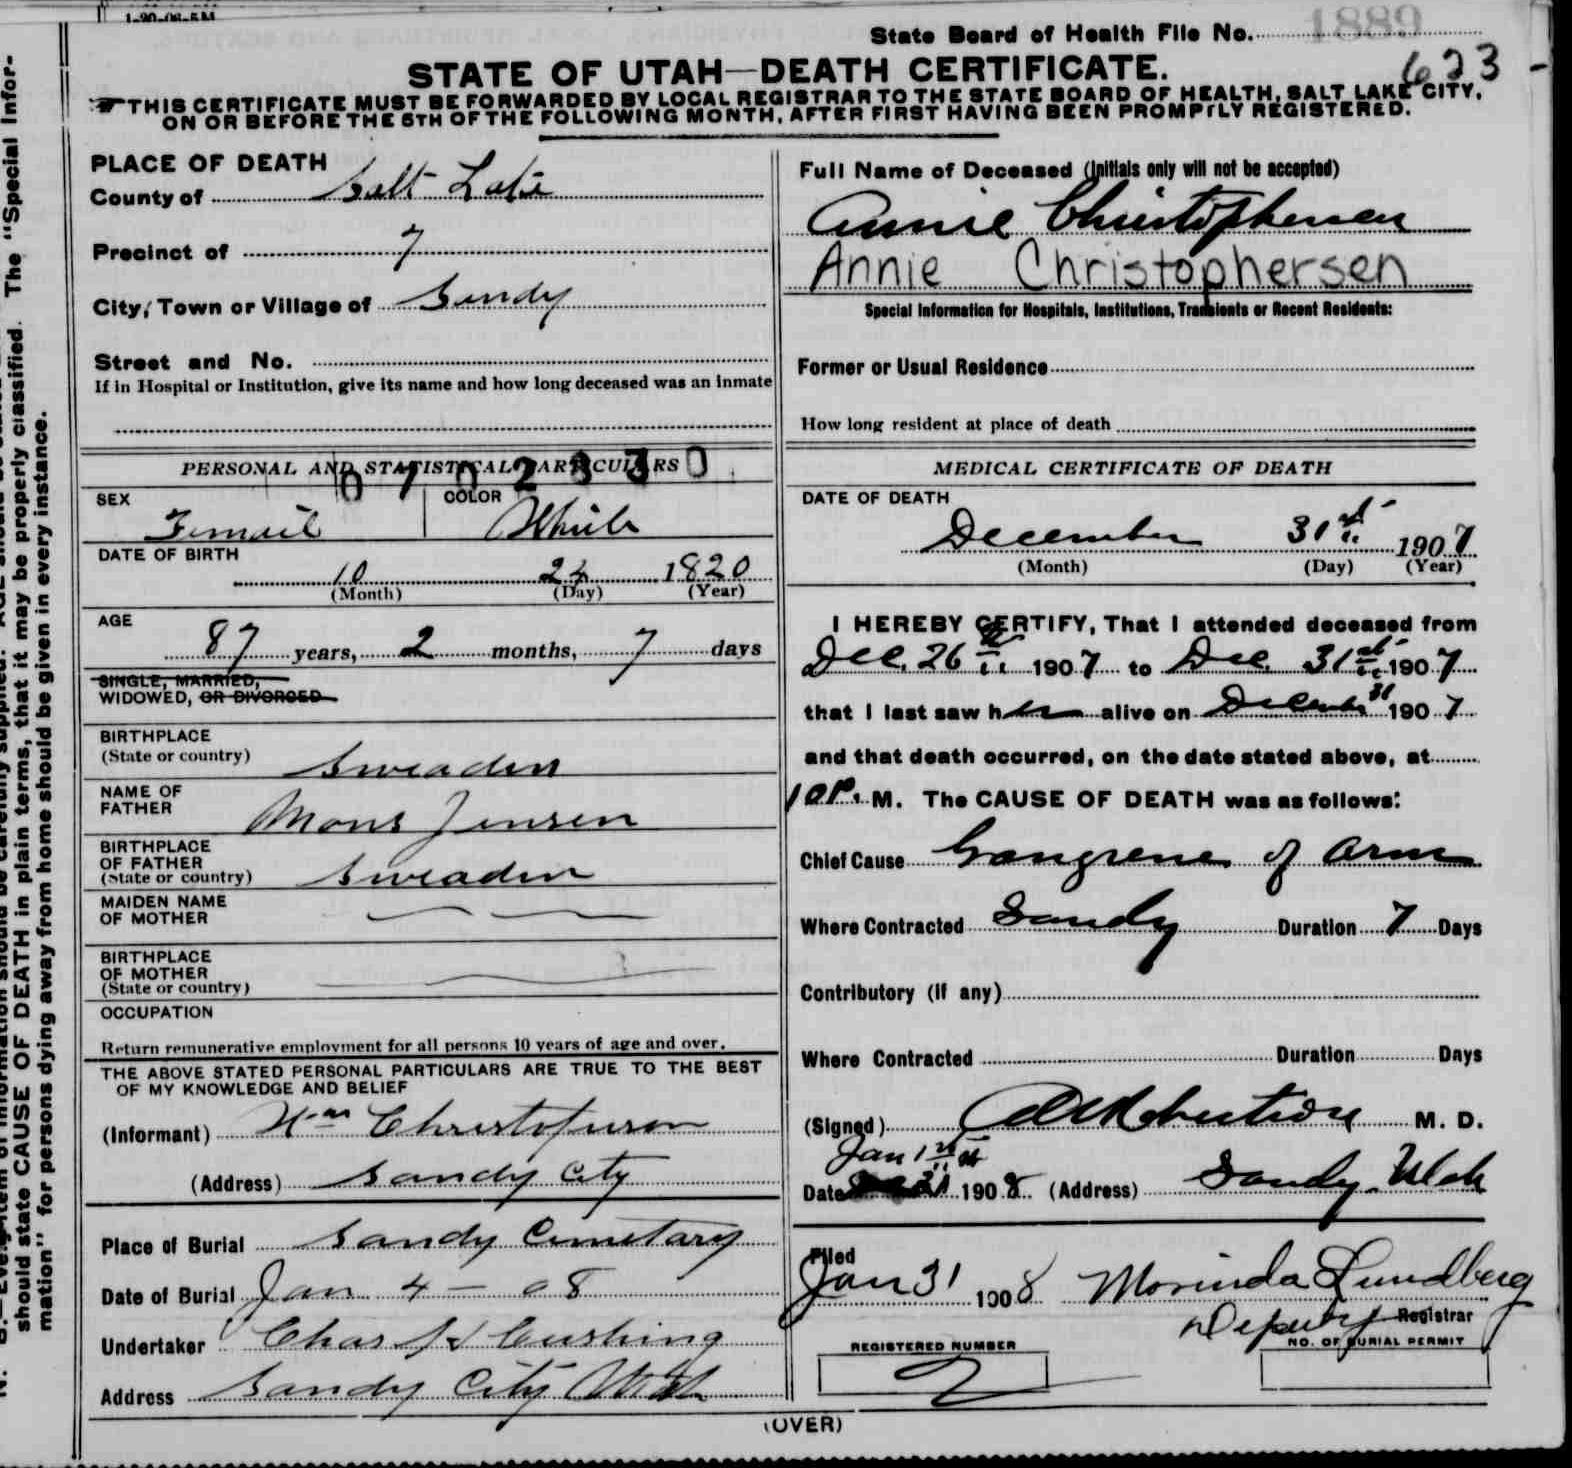 1-20-08-5M
State Board of Health File No. 1889
623 -
STATE OF UTAH—DEATH CERTIFICATE.
THIS CERTIFICATE MUST BE FORWARDED BY LOCAL REGISTRAR TO THE STATE BOARD OF HEALTH, SALT LAKE CITY,
ON OR BEFORE THE 5TH OF THE FOLLOWING MONTH, AFTER FIRST HAVING BEEN PROMPTLY REGISTERED.
PLACE OF DEATH
County of Salt Lake
Precinct of 7
City, Town or Village of Sandy
Street and No.
If in Hospital or Institution, give its name and how long deceased was an inmate
Full Name of Deceased (Initials only will not be accepted)
Annie Christophersen
Annie Christophersen
Special Information for Hospitals, Institutions, Transients or Recent Residents:
Former or Usual Residence
How long resident at place of death
PERSONAL AND STATISTICAL PARTICULARS
SEX Femail
COLOR White
DATE OF BIRTH
10 24 1820
(Month) (Day) (Year)
AGE
87 years, 2 months, 7 days
SINGLE, MARRIED,
WIDOWED, OR DIVORCED
BIRTHPLACE
(State or country) Sweaden
NAME OF
FATHER Mons Jensen
BIRTHPLACE
OF FATHER
(State or country) Sweaden
MAIDEN NAME
OF MOTHER
BIRTHPLACE
OF MOTHER
(State or country)
OCCUPATION
Return remunerative employment for all persons 10 years of age and over.
THE ABOVE STATED PERSONAL PARTICULARS ARE TRUE TO THE BEST
OF MY KNOWLEDGE AND BELIEF
(Informant) Christofurson
(Address) Sandy City
Place of Burial Sandy Cemetary
Date of Burial Jan 4 — 08
Undertaker Chas Cushing
Address Sandy City Utah
MEDICAL CERTIFICATE OF DEATH
DATE OF DEATH
December 31st 1907
(Month) (Day) (Year)
I HEREBY CERTIFY, That I attended deceased from
Dec. 26th 1907 to Dec. 31st 1907
that I last saw her alive on December 31 1907
and that death occurred, on the date stated above, at
10 P. M. The CAUSE OF DEATH was as follows:
Chief Cause Gangrene of Arm
Where Contracted Sandy Duration 7 Days
Contributory (if any)
Where Contracted Duration Days
(Signed) M. D.
Jan 1st
Date 1908 (Address) Sandy, Utah
Filed
Jan 31 1908 Morinda Lundberg
Deputy Registrar
REGISTERED NUMBER
2
NO. OF BURIAL PERMIT
(OVER)
should state CAUSE OF DEATH in plain terms, that it may be properly classified. The "Special Infor-
mation" for persons dying away from home should be given in every instance.